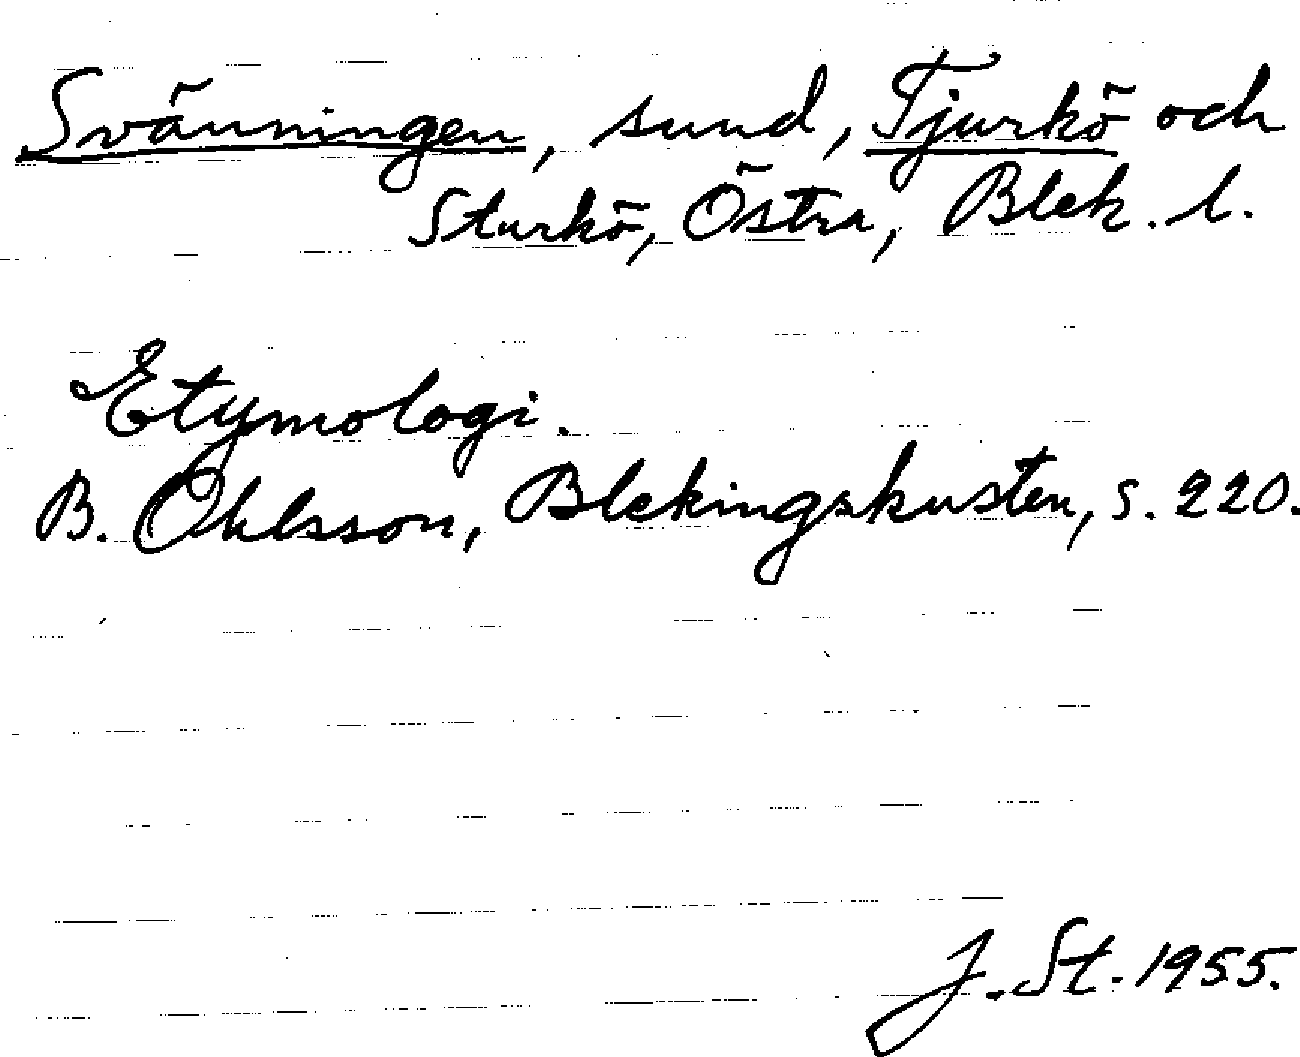 Svänningen, sund, Tjurkö och
Sturkö, Östra, Blek. l.
Etymologi.
B. Ohlsson, Blekingskusten, s. 220.
J. St. 1955.